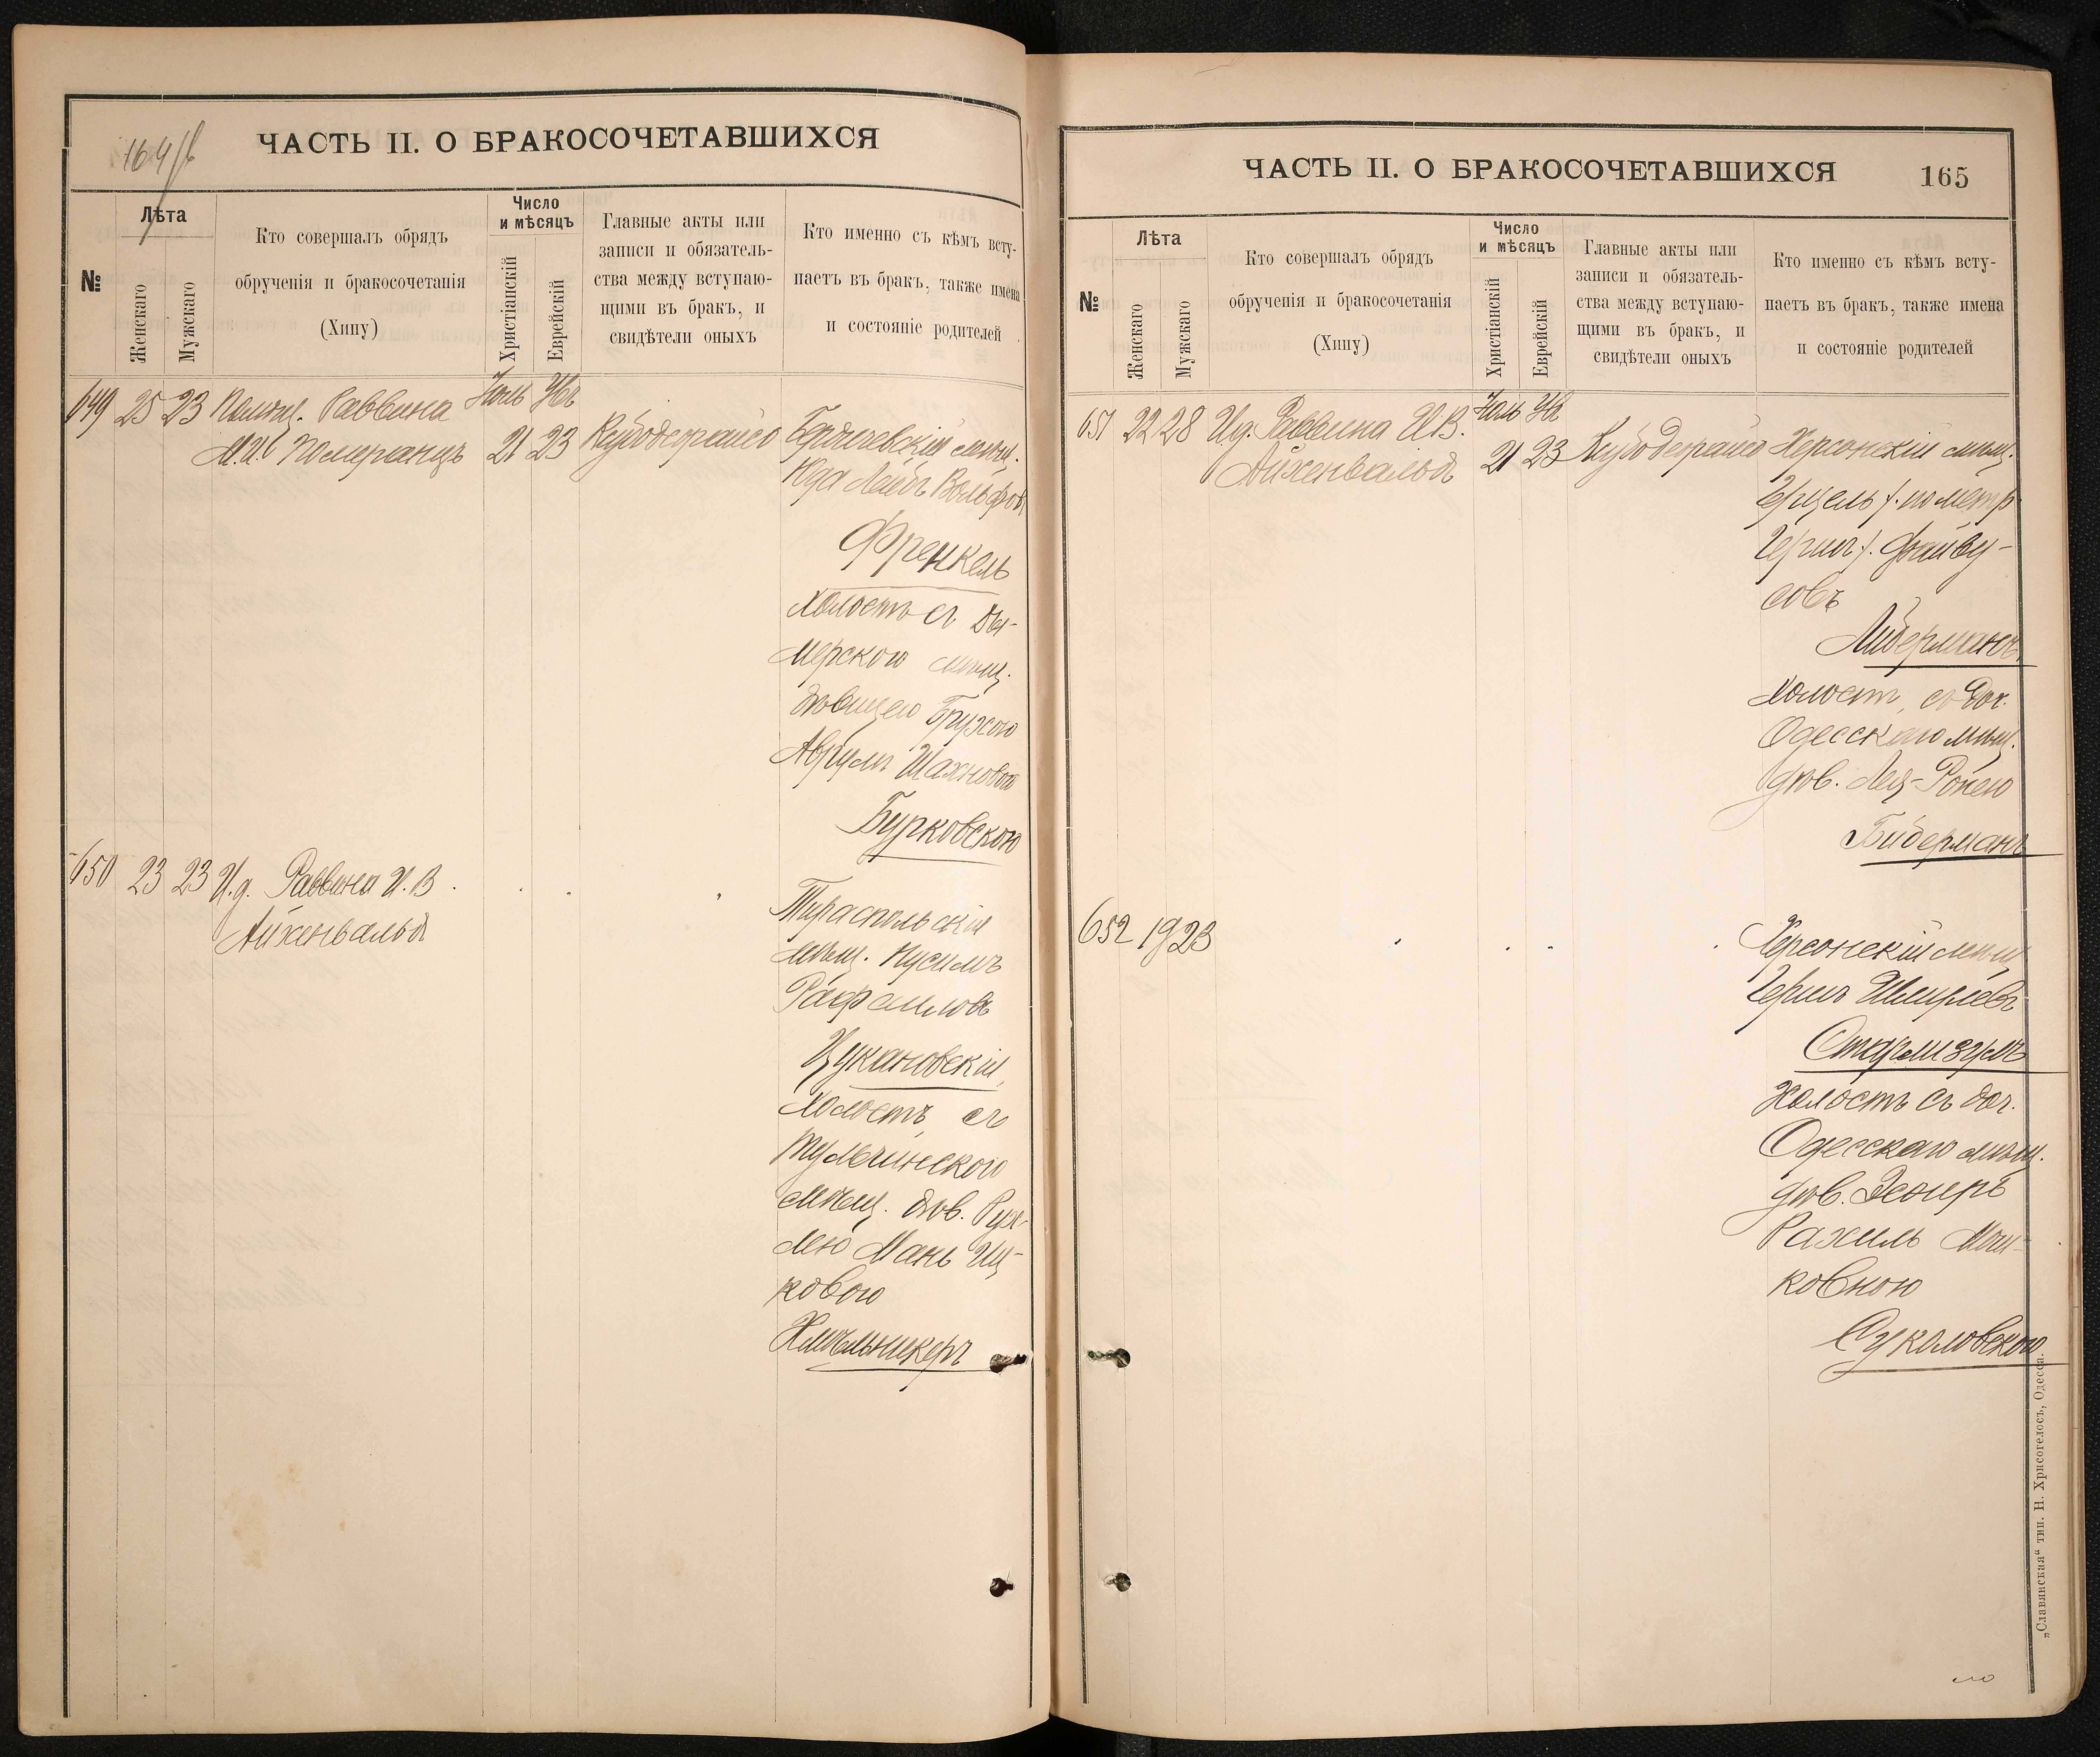 164/б
ЧАСТЬ II. О БРАКОСОЧЕТАВШИХСЯ
№
Лѣта
Женскаго
Мужскаго
Кто совершалъ обрядъ
обрученія и бракосочетанія
(Хипу)
Число
и мѣсяцъ
Христіанскій
Еврейскій
Главные акты или
записи и обязатель-
ства между вступаю-
щими въ бракъ, и
свидѣтели оныхъ
Кто именно съ кѣмъ всту-
паетъ въ бракъ, также имена
и состояніе родителей
649 25 23 Помощ. Раввина
М.И. Померанцъ
21 23
Бердичевскій мѣщ.
Юда Лейбъ Вольфовъ
Френкель
холостъ съ Ды-
мерского мѣщ.
дѣвицею Брухою
Шахновой
Бурковскою
650 23 23 И.д. Раввина И.В.
Айхенвальд
Тираспольскій
мѣщ. Нусимъ
Рафаиловъ
Цукановскій,
холостъ, съ
Тульчинского
мѣщ. дѣв. Рух-
лею Мань Иц-
ковою
Хмѣльникеръ
ЧАСТЬ II. О БРАКОСОЧЕТАВШИХСЯ
165
№
Лѣта
Женскаго
Мужскаго
Кто совершалъ обрядъ
обрученія и бракосочетанія
(Хипу)
Число
и мѣсяцъ
Христіанскій
Еврейскій
Главные акты или
записи и обязатель-
ства между вступаю-
щими въ бракъ, и
свидѣтели оныхъ
Кто именно съ кѣмъ всту-
паетъ въ бракъ, также имена
и состояніе родителей
651 22 28 Ид. Раввина И.В.
Айхенвальдъ
21 23
Херсонскій мѣщ.
Герцель /. по метр.
Гершъ /. Файву-
совъ
Либерманъ,
холост, съ доч.
Одесскаго мѣщ.
дѣв.
Бидерманъ
652 19 23
Херсонскій мѣщ.
Гершъ
Стармизумъ
Холостъ съ доч.
Одесскаго мѣщ.
дѣв. Эсѳирь
Рахиль Мош-
ковною
Сукаловскою
„Славянская“ тип. Н. Хрисогелосъ, Одесса.